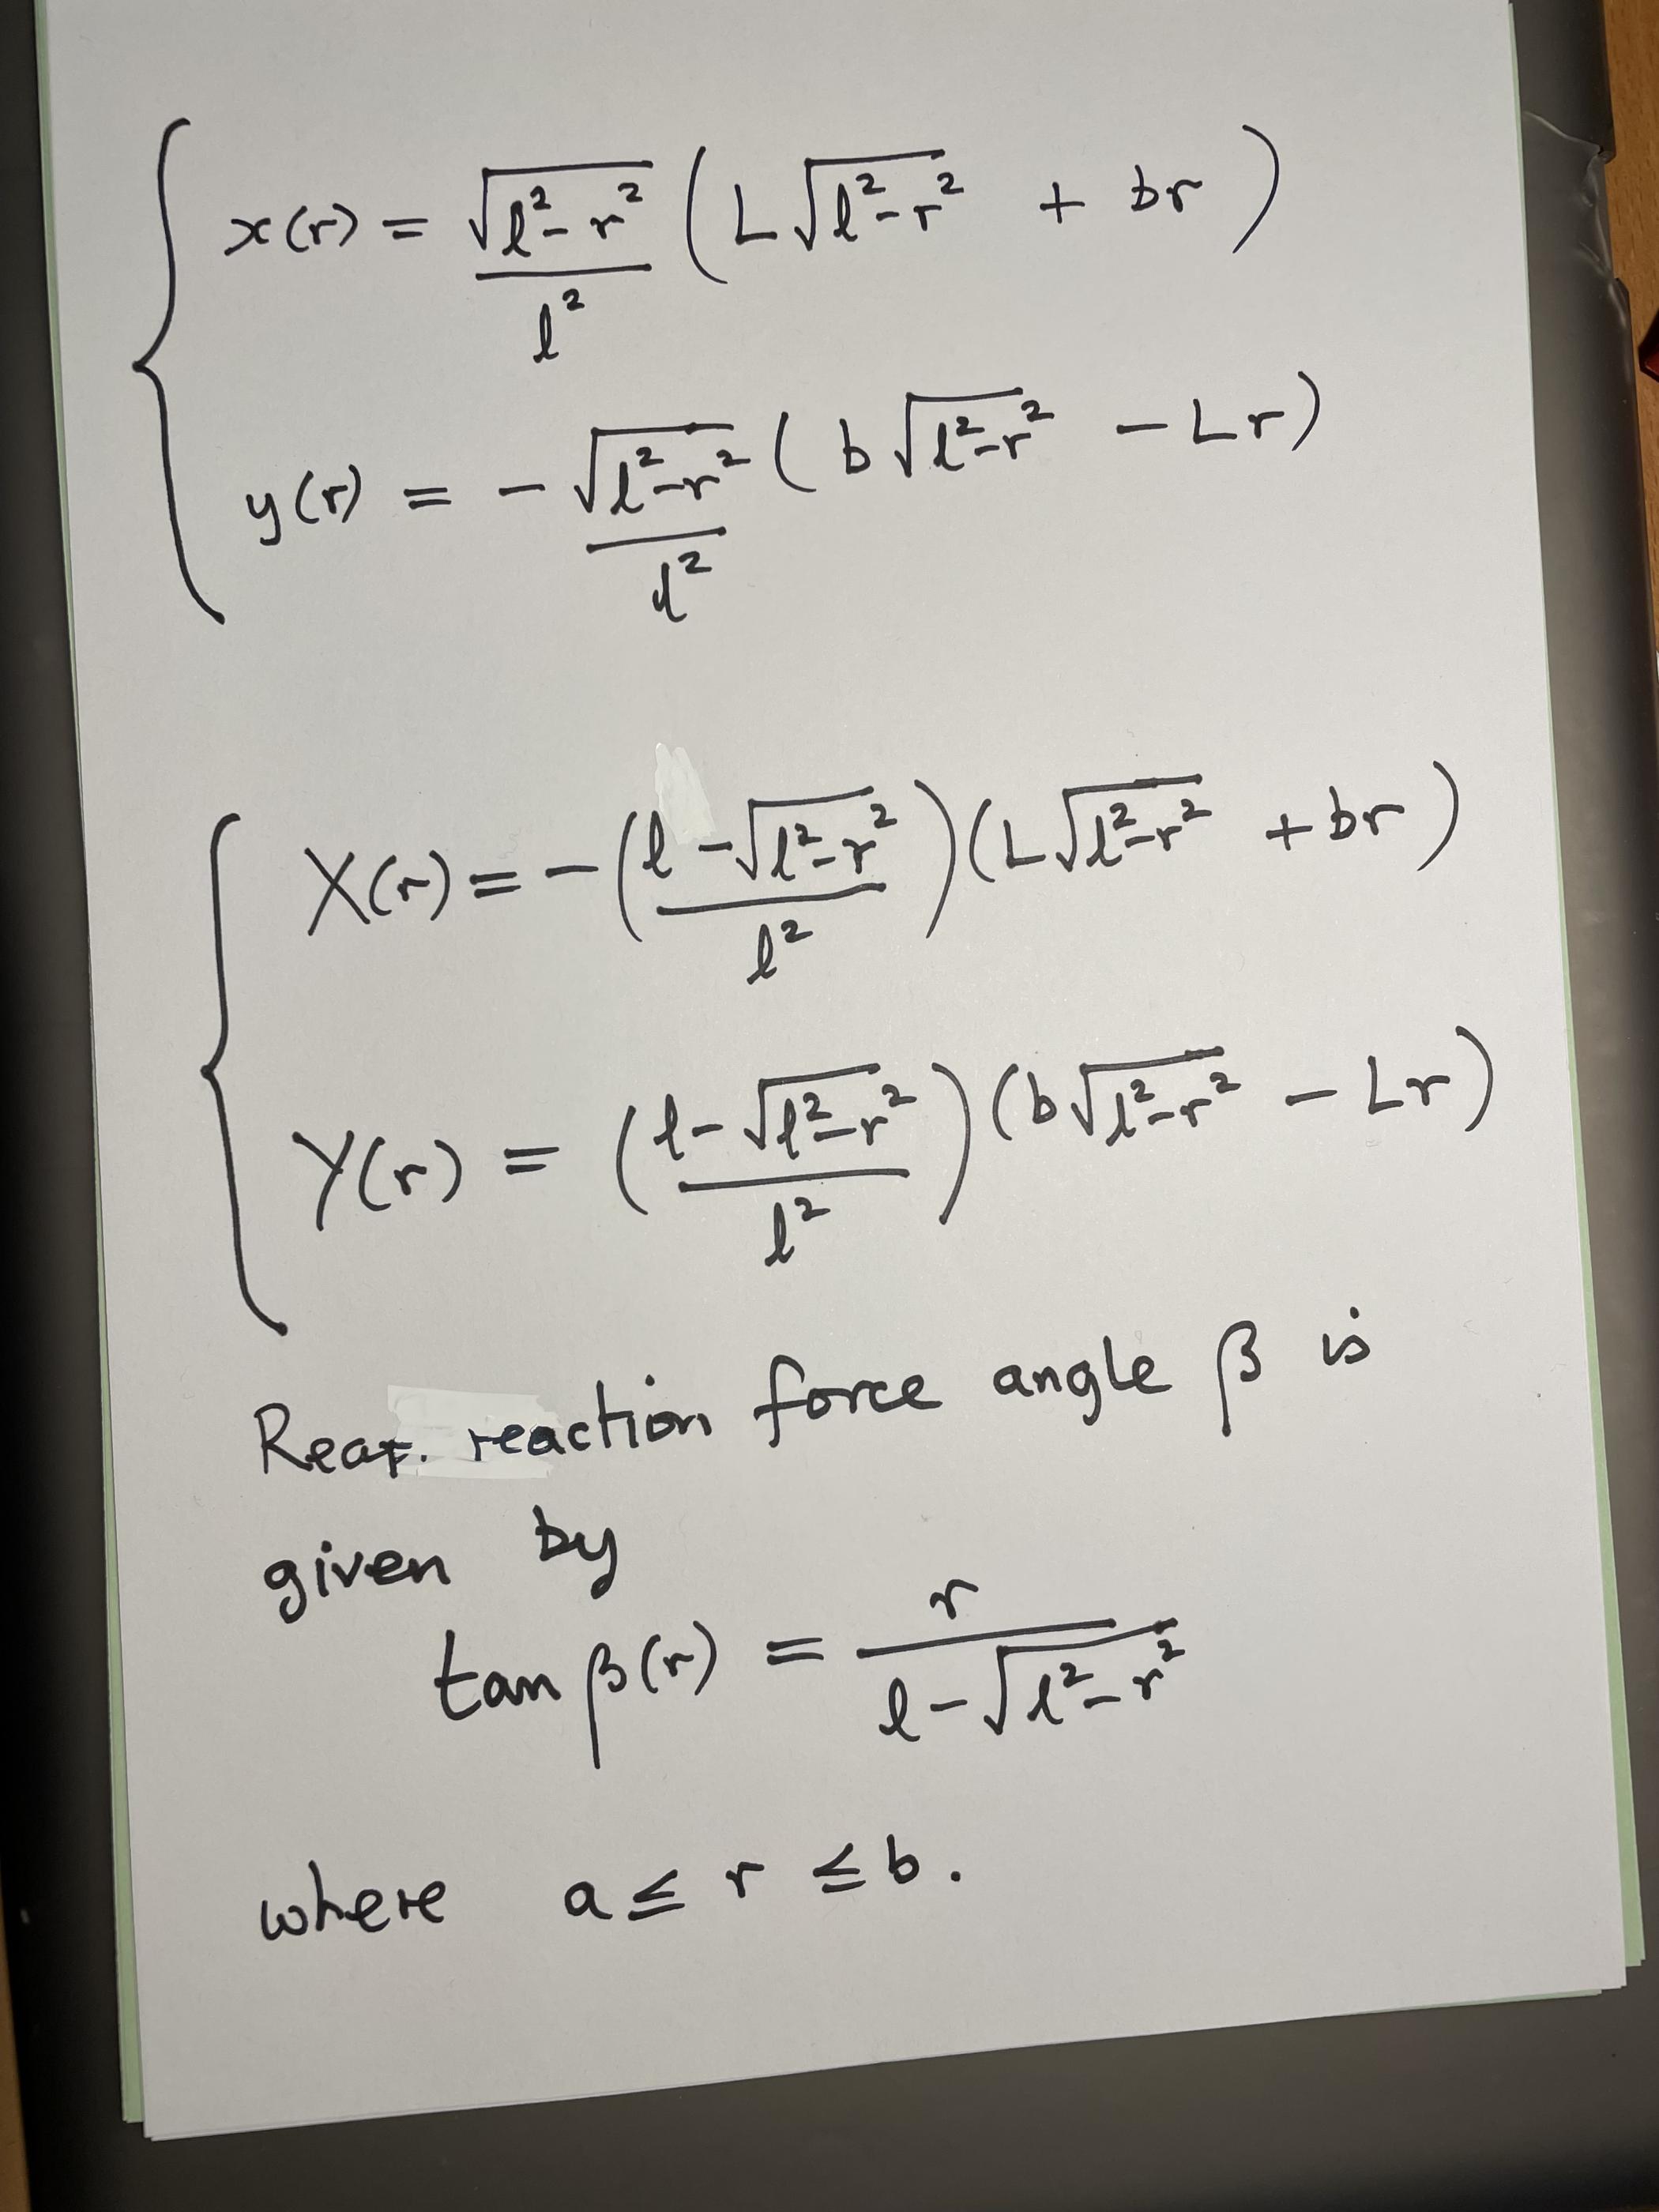 x(r) = √(l²-r²) / l² (L√(l²-r²) + br)
y(r) = - √(l²-r²) / l² (b√(l²-r²) - Lr)
X(r) = - ((l - √(l²-r²)) / l²) (L√(l²-r²) + br)
Y(r) = ((l - √(l²-r²)) / l²) (b√(l²-r²) - Lr)
Rear. reaction force angle β is
given by
tan β(r) = r / (l - √(l²-r²))
where a ≤ r ≤ b.